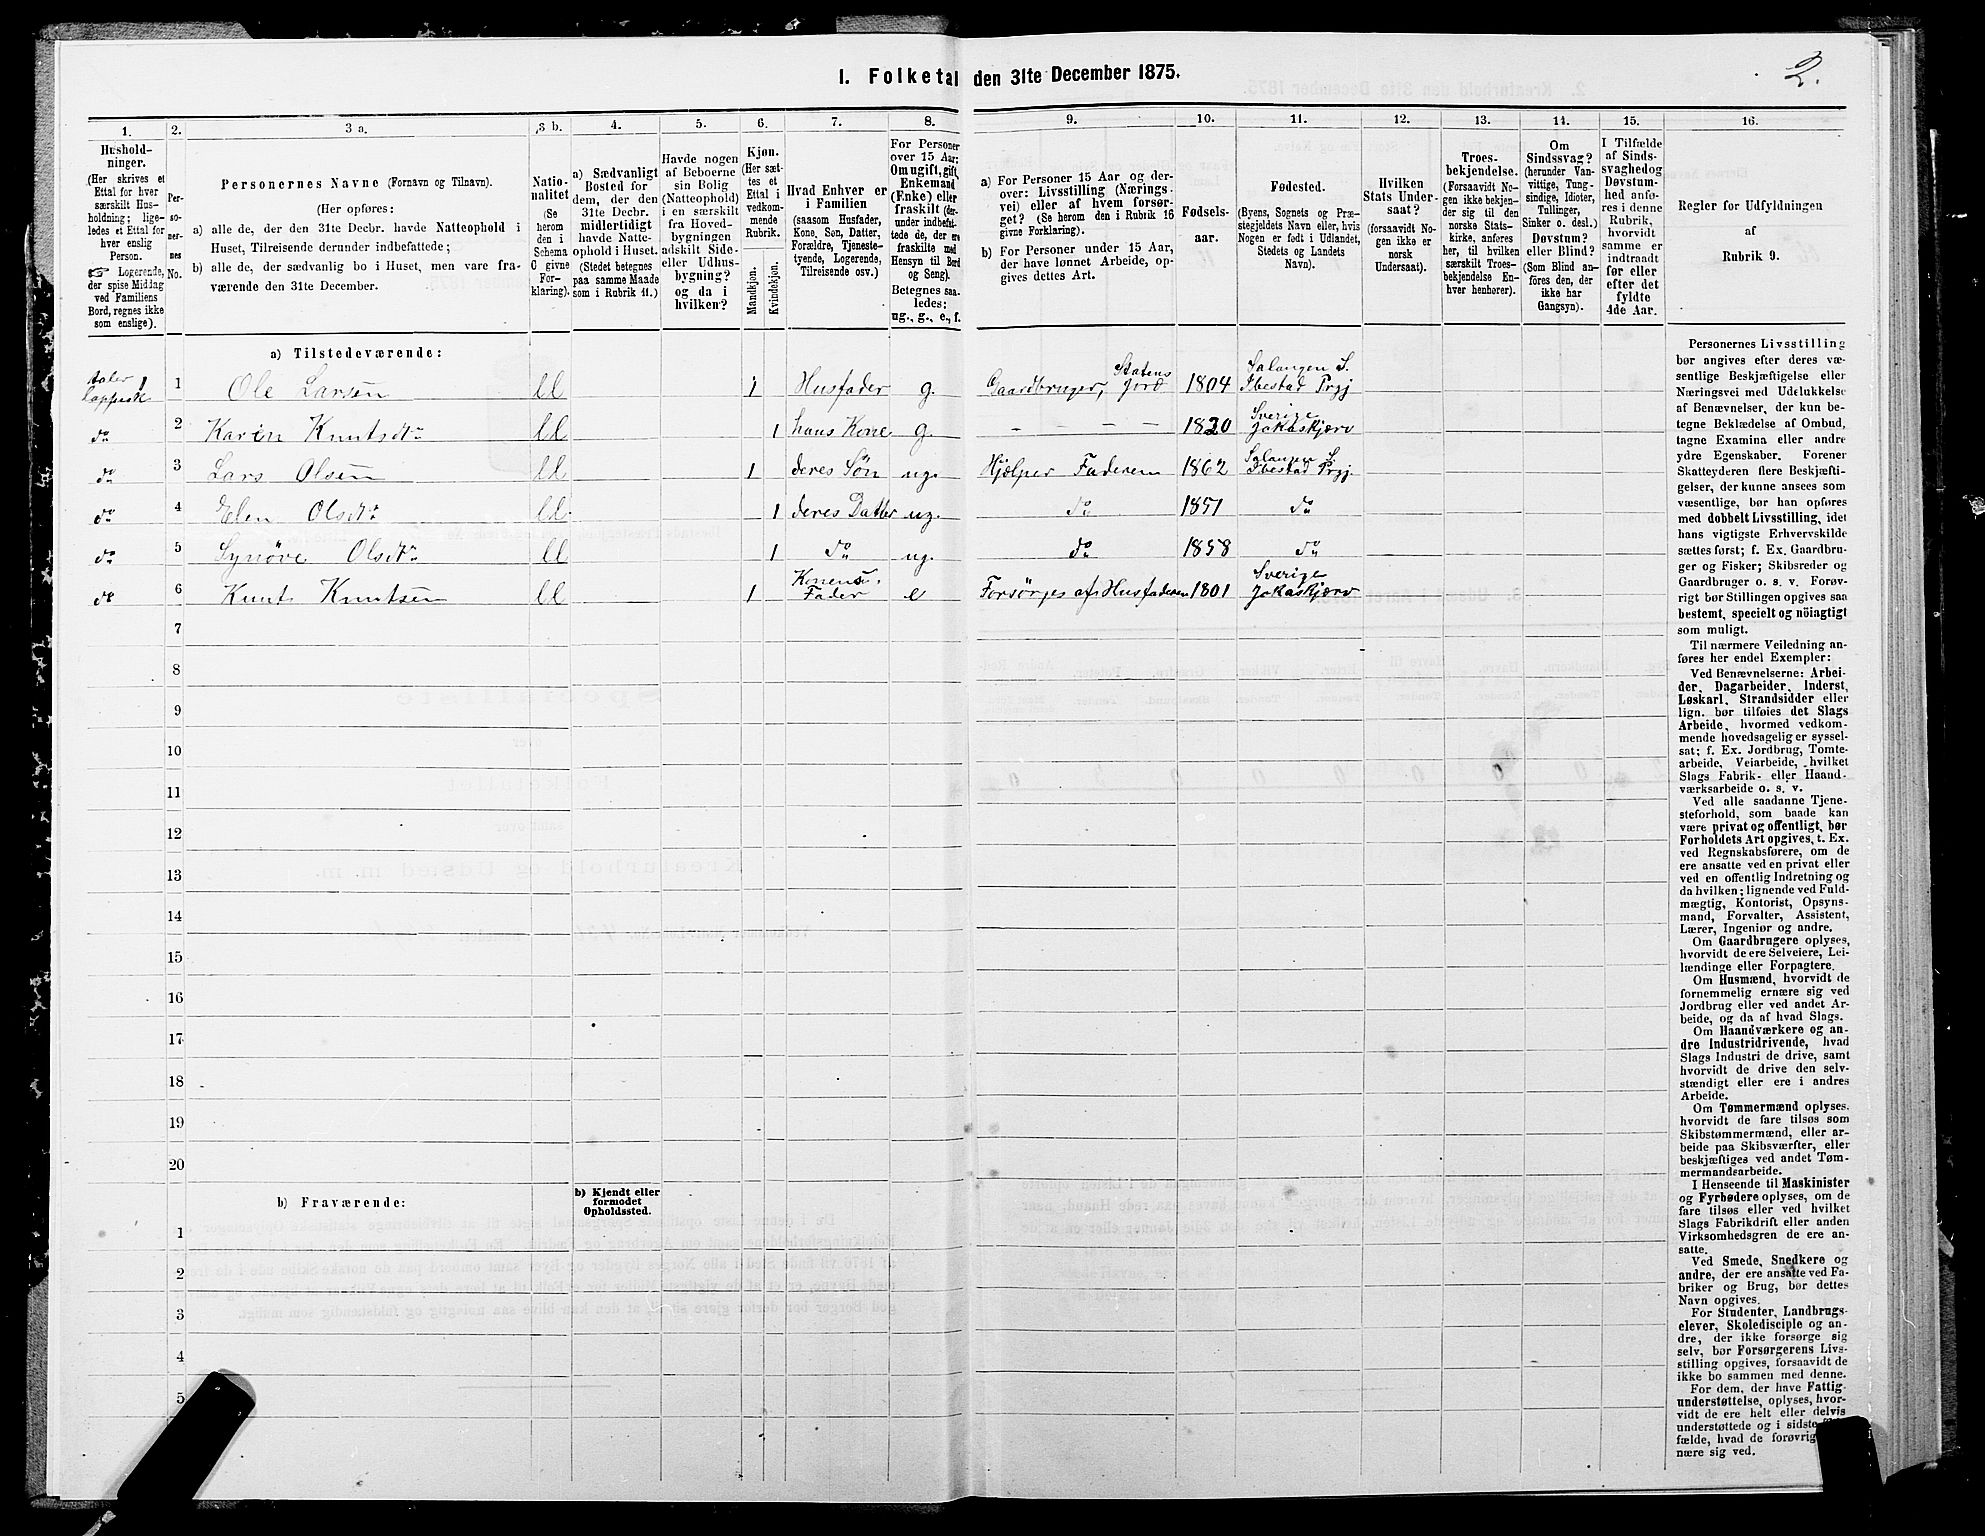 2.
I. Folketal den 31te December 1875.
1. 2. 3 a. 3 b. 4. 5. 6. 7. 8. 9. 10. 11. 12. 13. 14. 15. 16.
Hushold-
ninger.
(Her skrives et
Ettal for hver
særskilt Hus-
holdning; lige-
ledes et Ettal for
hver enslig
Person.
☞ Logerende,
der spise Middag
ved Familiens
Bord, regnes ikke
som enslige).
Per-
so-
ner-
nes
No.
Personernes Navne (Fornavn og Tilnavn).
(Her opføres:
a) alle de, der den 31te Decbr. havde Natteophold i
Huset, Tilreisende derunder indbefattede;
b) alle de, der sædvanlig bo i Huset, men vare fra-
værende den 31te December.
Natio-
nalitet
(Se
herom
den i
Schema
C givne
For-
klaring).
a) Sædvanligt
Bosted for
dem, der den
31te Decbr.
midlertidigt
havde Natte-
ophold i Huset.
(Stedet betegnes
paa samme Maade
som i Rubrik 11.)
Havde nogen
af Beboerne
sin Bolig
(Natteophold)
i en særskilt
fra Hoved-
bygningen
adskilt Side-
eller Udhus-
bygning?
og da i
hvilken?
Kjøn.
(Her sæt-
tes et
Ettal i
vedkom-
mende
Rubrik.
Mandkjøn.
Kvindekjøn.
Hvad Enhver er
i Familien
(saasom Husfader,
Kone, Søn, Datter,
Forældre, Tjeneste-
tyende, Logerende,
Tilreisende osv.)
For Personer
over 15 Aar:
Om ugift, gift,
Enkemand
(Enke) eller
fraskilt (der-
under indbefat-
tede de, der ere
fraskilte med
Hensyn til Bord
og Seng).
Betegnes saa-
ledes:
ug., g., e., f.
a) For Personer 15 Aar og der-
over: Livsstilling (Nærings-
vei) eller af hvem forsør-
get? (Se herom den i Rubrik 16
givne Forklaring).
b) For Personer under 15 Aar,
der have lønnet Arbeide, op-
gives dettes Art.
Fødsels-
aar.
Fødested.
(Byens, Sognets og Præ-
stegjeldets Navn eller, hvis
Nogen er født i Udlandet,
Stedets og Landets
Navn).
Hvilken
Stats Under-
saat?
(forsaavidt No-
gen ikke er
norsk
Undersaat).
Troes-
bekjendelse.
(Forsaavidt No-
gen ikke bekjen-
der sig til den
norske Stats-
kirke, anføres
her, til hvilken
særskilt Troes-
bekjendelse En-
hver henhører).
Om
Sindssvag?
(herunder Van-
vittige, Tung-
sindige, Idioter,
Tullinger,
Sinker o. desl.)
Døvstum?
eller Blind?
(Som Blind an-
føres den, der
ikke har
Gangsyn).
I Tilfælde
af Sinds-
svaghed og
Døvstum-
hed anfø-
res i denne
Rubrik,
hvorvidt
samme er
indtraadt
før eller
efter det
fyldte
4de Aar.
Regler for Udfyldningen
af
Rubrik 9.
a) Tilstedeværende:
taler lappisk 1 1 Ole Larsen ll 1 Husfader g. Gaardbruger, Statens Jord 1804 Salangen S. Ibestad Prgj
do 2 Karen Knutsdtr ll 1 hans Kone g. - - - - 1820 Sverige Jokaskjærv
do 3 Lars Olsen ll 1 deres Søn ug. Hjælper Faderen 1862 Salangen S. Ibestad Prgj
do 4 Elen Olsdtr ll 1 deres Datter ug. do 1851 do
do 5 Synøve Olsdtr ll 1 do ug. do 1858 do
do 6 Knut Knutsen ll 1 Konens Fader e Forsørges af Husfaderen 1801 Sverige Jokaskjærv
7
8
9
10
11
12
13
14
15
16
17
18
19
20
b) Fraværende:
b) Kjendt eller
formodet
Opholdssted.
1
2
3
4
5
Personernes Livsstilling
bør angives efter deres væ-
sentlige Beskjæftigelse eller
Næringsvei med Udelukkelse
af Benævnelser, der kun be-
tegne Beklædelse af Ombud,
tagne Examina eller andre
ydre Egenskaber. Forener
Skatteyderen flere Beskjæfti-
gelser, der kunne ansees som
væsentlige, bør han opføres
med dobbelt Livsstilling, idet
hans vigtigste Erhvervskilde
sættes først; f. Ex. Gaardbru-
ger og Fisker; Skibsreder og
Gaardbruger o. s. v. Forøv-
rigt bør Stillingen opgives saa
bestemt, specielt og nöiagtigt
som muligt.
Til nærmere Veiledning an-
føres her endel Exempler:
Ved Benævnelserne: Arbei-
der, Dagarbeider, Inderst,
Løskarl, Strandsidder eller
lign. bør tilføies det Slags
Arbeide, hvormed vedkom-
mende hovedsagelig er syssel-
sat; f. Ex. Jordbrug, Tomte-
arbeide, Veiarbeide, hvilket
Slags Fabrik- eller Haand-
værksarbeide o. s. v.
Ved alle saadanne Tjene-
steforhold, som baade kan
være privat og offentligt, bør
Forholdets Art opgives, t. Ex.
ved Regnskabsførere, om de
ere ansatte ved en privat eller
ved en offentlig Indretning og
da hvilken; lignende ved Fuld-
mægtig, Kontorist, Opsyns-
mand, Forvalter, Assistent,
Lærer, Ingeniør og andre.
Om Gaardbrugere oplyses,
hvorvidt de ere Selveiere, Lei-
lændinge eller Forpagtere.
Om Husmænd, hvorvidt de
fornemmelig ernære sig ved
Jordbrug eller ved andet Ar-
beide, og da af hvad Slags.
Om Haandværkere og an-
dre Industridrivende, hvad
Slags Industri de drive, samt
hvorvidt de drive den selv-
stændigt eller ere i andres
Arbeide.
Om Tømmermænd oplyses,
hvorvidt de fare tilsøs som
Skibstømmermænd, eller ar-
beide paa Skibsværfter, eller
beskjæftiges ved andet Tøm-
mermandsarbeide.
I Henseende til Maskinister
og Fyrbødere oplyses, om de
fare tilsøs eller ved hvilket
Slags Fabrikdrift eller anden
Virksomhedsgren de ere an-
satte.
Ved Smede, Snedkere og
andre, der ere ansatte ved Fa-
briker og Brug, bør dettes
Navn opgives.
For Studenter, Landbrugs-
elever, Skoledisciple og an-
dre, der ikke forsørge sig
selv, bør Forsørgerens Livs-
stilling opgives, forsaavidt de
ikke bo sammen med denne.
For dem, der have Fattig-
understøttelse, oplyses, hvor-
vidt de ere helt eller delvis
understøttede og i sidste
fælde, hvad de forøvrig
nære sig ved.